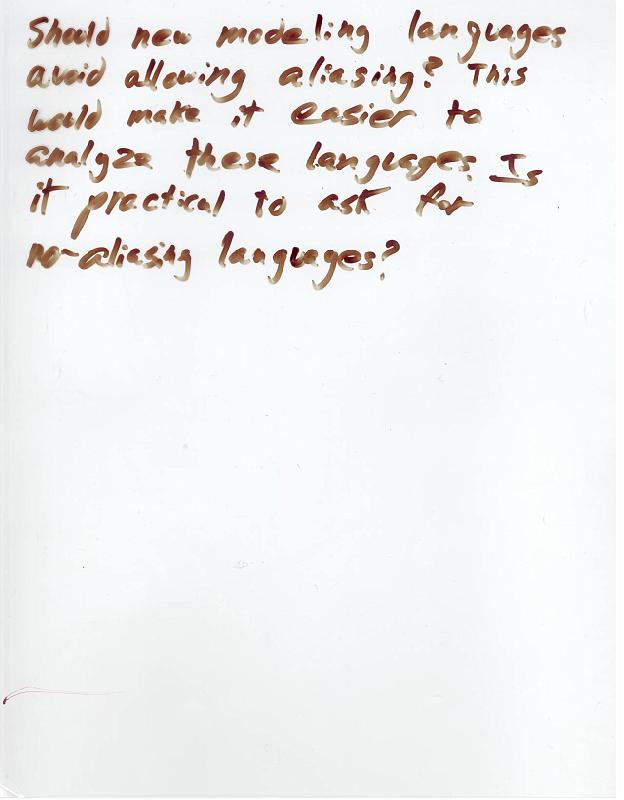 Should new modeling languages
avoid allowing aliasing? This
would make it easier to
analyze these languages. Is
it practical to ask for
no-aliasing languages?